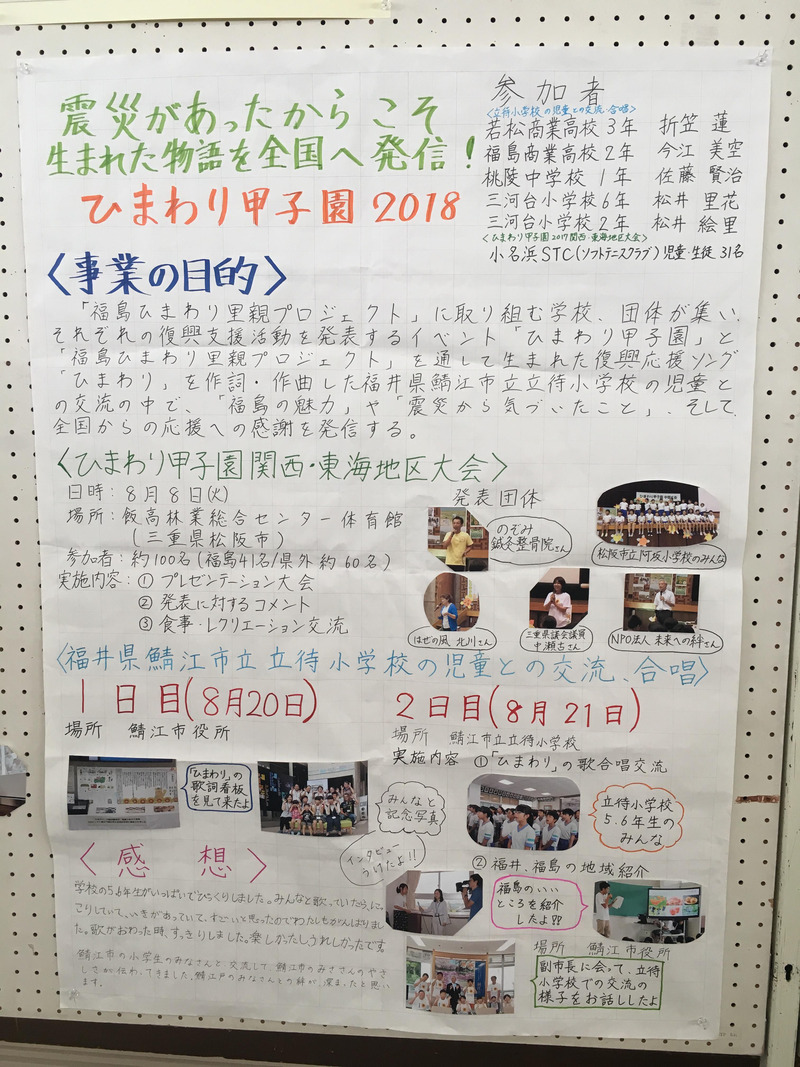 震災があったからこそ
生まれた物語を全国へ発信!
ひまわり甲子園 2018
参加者
〈立待小学校の児童との交流・合唱〉
若松商業高校3年 折笠 蓮
福島商業高校2年 今江 美空
桃陵中学校 1年 佐藤 賢治
三河台小学校6年 松井 里花
三河台小学校2年 松井 絵里
〈ひまわり甲子園2017関西・東海地区大会〉
小名浜STC(ソフトテニスクラブ)児童・生徒 31名
〈事業の目的〉
「福島ひまわり里親プロジェクト」に取り組む学校、団体が集い、
それぞれの復興支援活動を発表するイベント「ひまわり甲子園」と
「福島ひまわり里親プロジェクト」を通して生まれた復興応援ソング
「ひまわり」を作詞・作曲した福井県鯖江市立立待小学校の児童と
の交流の中で、「福島の魅力」や「震災から気づいたこと」、そして、
全国からの応援への感謝を発信する。
〈ひまわり甲子園関西・東海地区大会〉
日時:8月8日(火)
場所:飯高林業総合センター体育館
(三重県松阪市)
参加者:約100名(福島41名/県外約60名)
実施内容:① プレゼンテーション大会
② 発表に対するコメント
③ 食事・レクリエーション交流
発表団体
のぞみ
鍼灸整骨院さん
松阪市立阿坂小学校のみんな
はせの風 北川さん
三重県議会議員
中瀬古さん
NPO法人 未来への絆さん
〈福井県鯖江市立立待小学校の児童との交流、合唱〉
1日目(8月20日)
場所 鯖江市役所
「ひまわり」の
歌詞看板
を見て来たよ
みんなと
記念写真
2日目(8月21日)
場所 鯖江市立立待小学校
実施内容 ①「ひまわり」の歌合唱交流
立待小学校
5.6年生の
みんな
インタビュー
うけたよ!!
② 福井、福島の地域紹介
福島のいい
ところを紹介
したよ!!
場所 鯖江市役所
副市長に会って、立待
小学校での交流の
様子をお話ししたよ
〈感想〉
学校の5.6年生がいっぱいでびっくりしました。みんなと歌っていたら、にっ
こりしていて、いきがあっていて、すごいと思ったのでわたしもがんばりまし
た。歌がおわった時、すっきりしました。楽しかったしうれしかったです。
鯖江市の小学生のみなさんと、交流して、鯖江市のみなさんのやさ
しさが伝わってきました。鯖江戸のみなさんとの絆が、深まったと思い
ます。